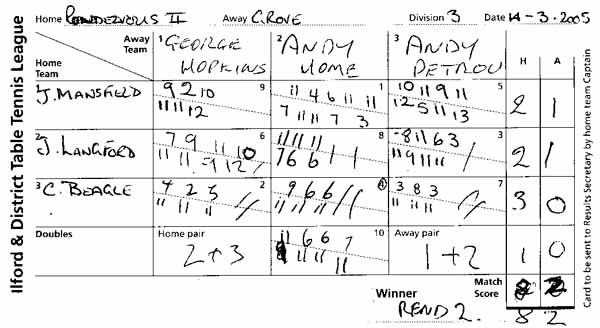 Ilford & District Table Tennis League
Home RENDEZVOUS II Away C.ROVE Division 3 Date 14-3-2005
Away Team 1 GEORGE HOPKINS 2 ANDY HOME 3 ANDY PETROU H A
Home Team
1 J. MANSFIELD 9 2 10 9 11 4 6 11 11 1 10 11 9 11 5 2 1
11 11 12 7 11 11 7 3 12 5 11 13
2 J. LANGFORD 7 9 11 10 6 11 11 11 8 8 11 6 3 3 2 1
11 11 9 12 7 6 6 11 9 11 11
3 C. BEAGLE 4 2 5 2 9 6 6 4 3 8 3 7 3 0
11 11 11 11 11 11 11 11 11
Doubles Home pair 2+3 11 6 6 7 10 Away pair 1+2 1 0
11 11 11
Winner REND 2. Match Score 8 2
Card to be sent to Results Secretary by home team Captain